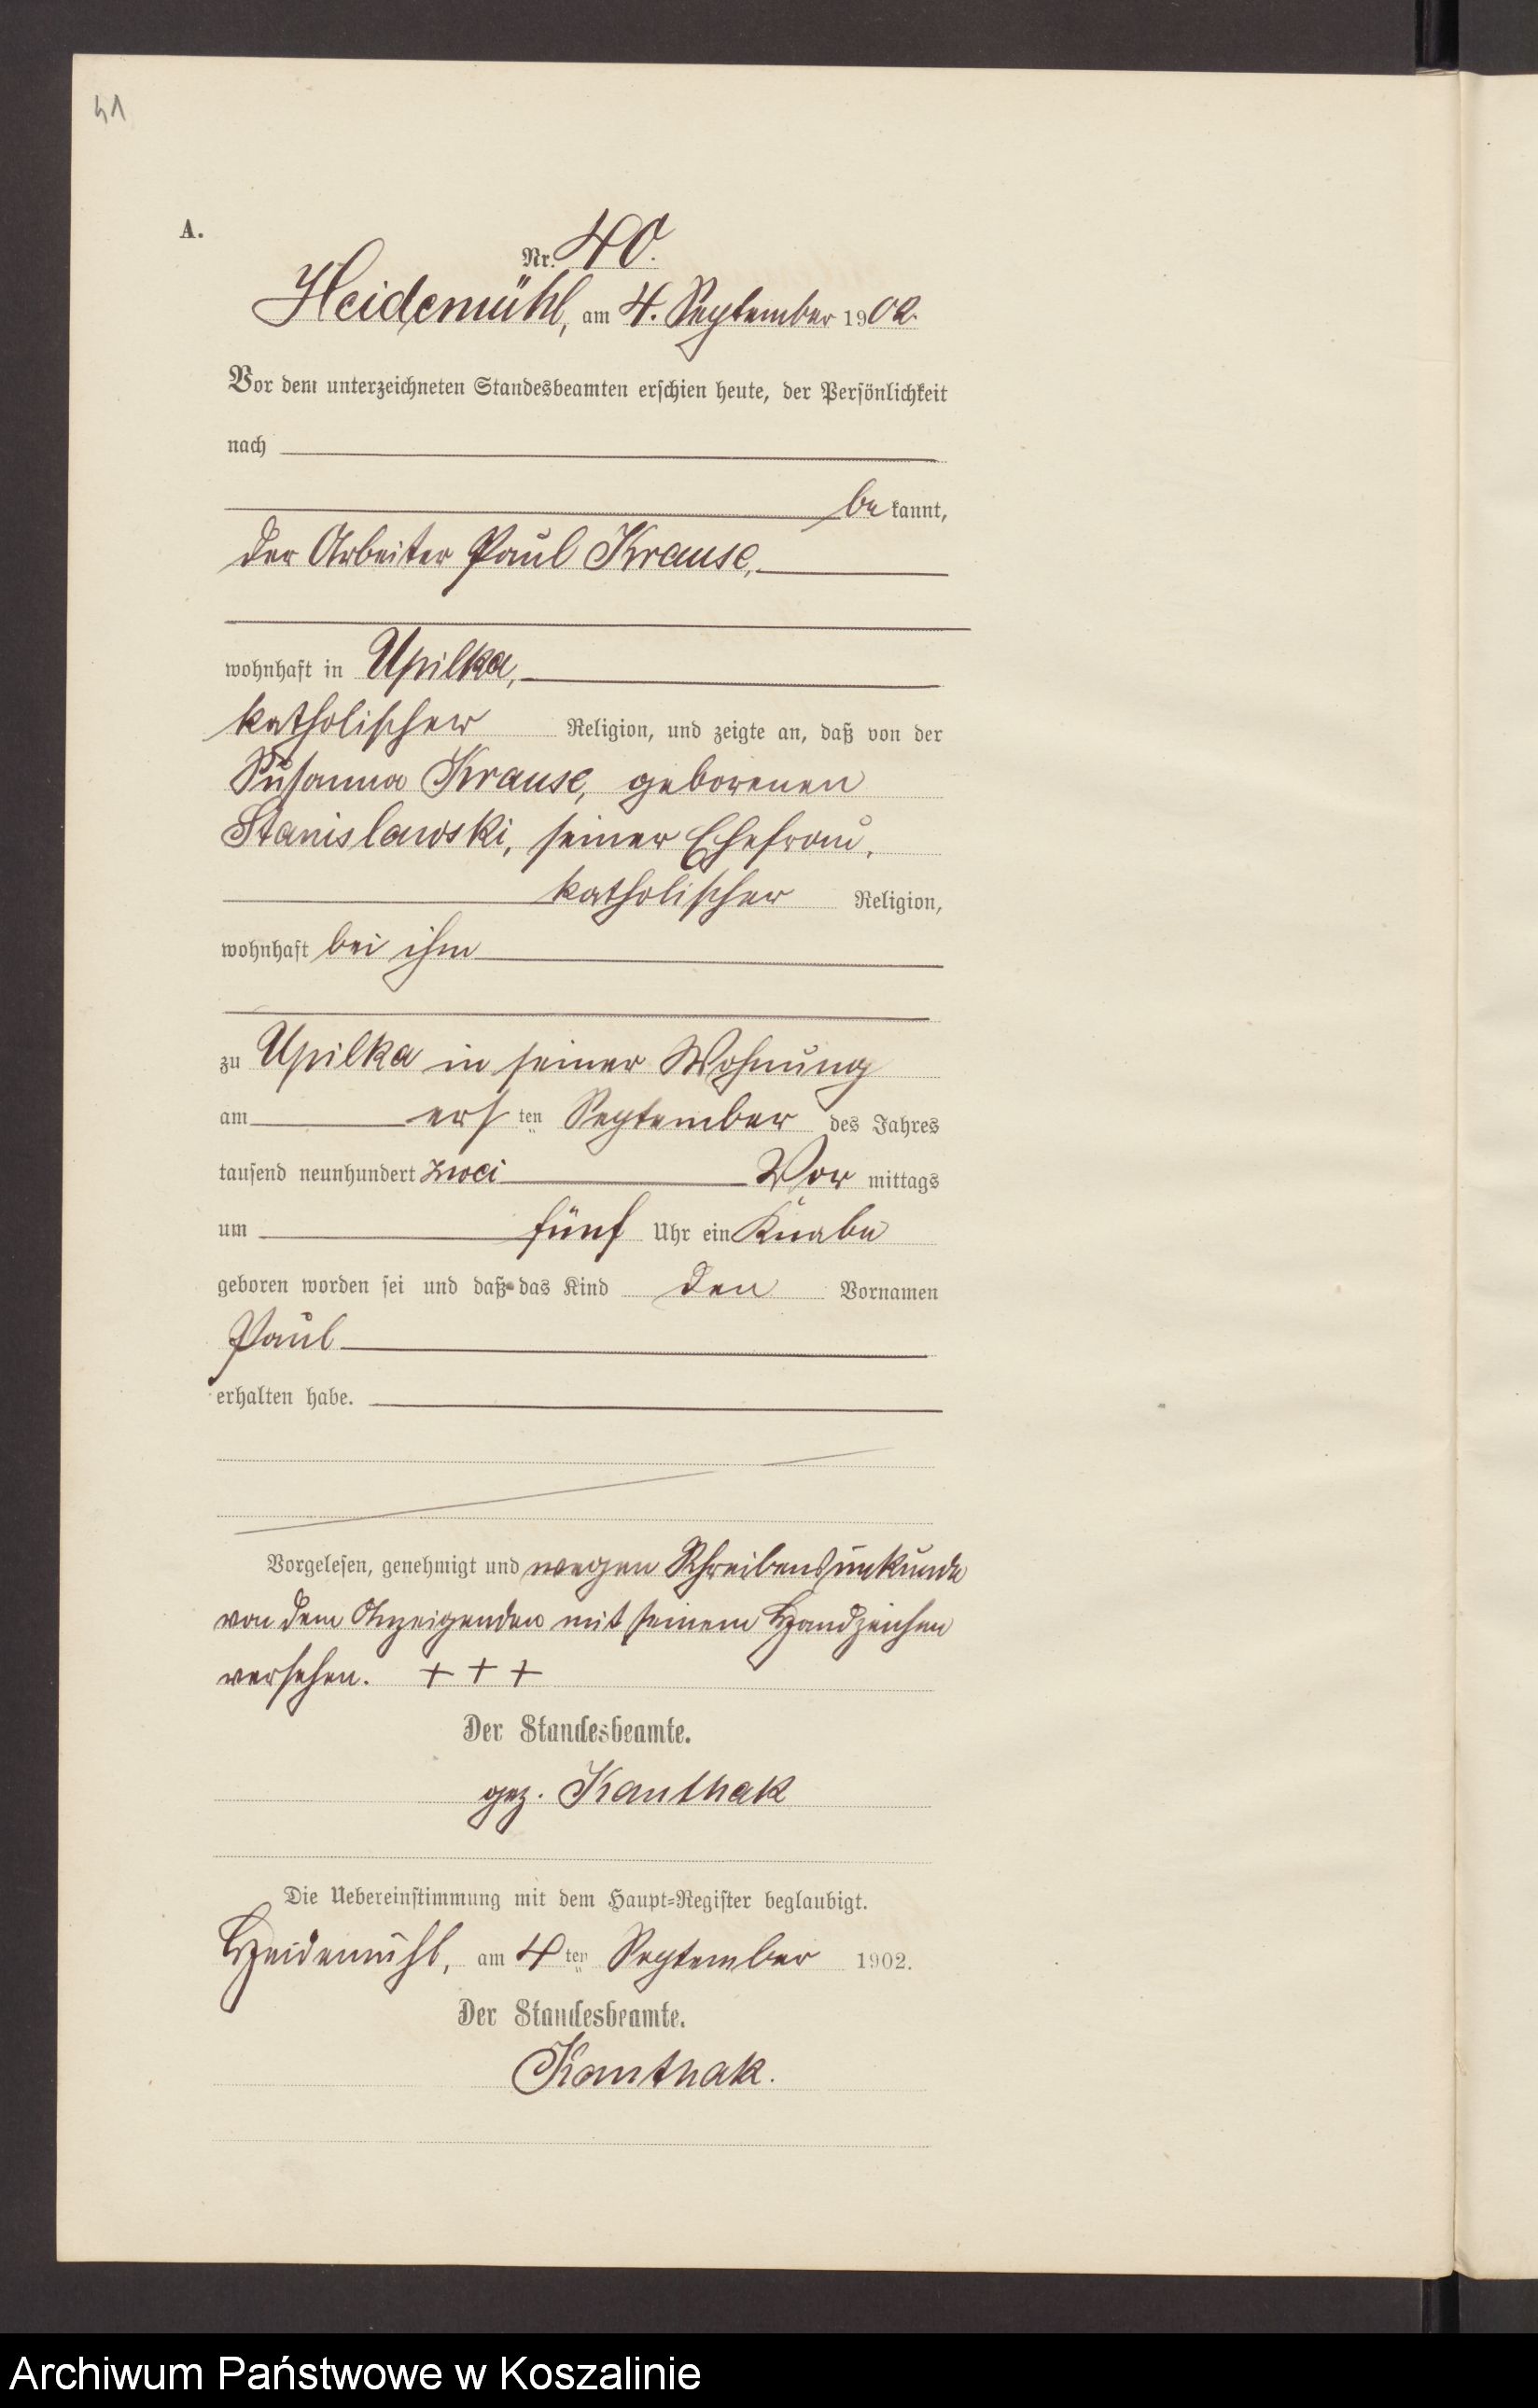 41
A.
Nr. 40.
Heidemühl, am 4. September 1902.
Vor dem unterzeichneten Standesbeamten erschien heute, der Persönlichkeit
nach
be kannt,
der Arbeiter Paul Krause,
wohnhaft in Upilka,
katholischer Religion, und zeigte an, daß von der
Susanna Krause, geborenen
Stanislawski, seiner Ehefrau,
katholischer Religion,
wohnhaft bei ihm
zu Upilka in seiner Wohnung
am ers ten September des Jahres
tausend neunhundert zwei Vor mittags
um fünf Uhr ein Knabe
geboren worden sei und daß das Kind den Vornamen
Paul
erhalten habe.
Vorgelesen, genehmigt und wegen Schreibensunkunde
von dem Anzeigenden mit seinem Handzeichen
versehen. + + +
Der Standesbeamte.
gez. Kanthak
Die Uebereinstimmung mit dem Haupt-Register beglaubigt.
Heidemühl, am 4 ten September 1902.
Der Standesbeamte.
Kanthak.
Archiwum Państwowe w Koszalinie